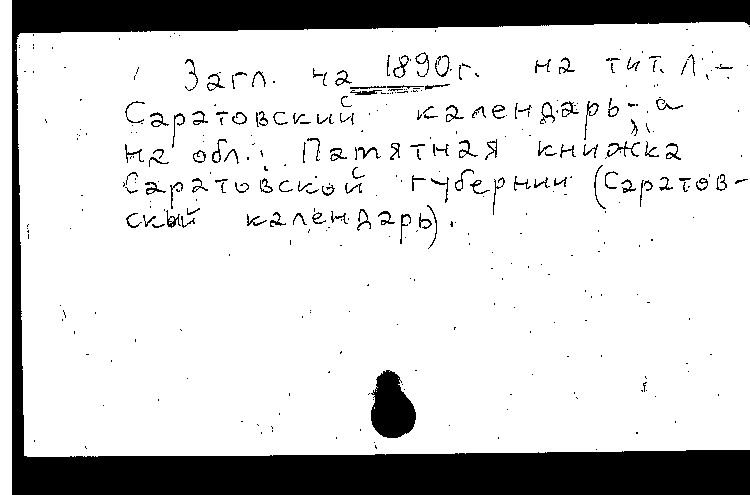 Загл. на 1890 г. на тит. л. -
Саратовский календарь, а
на обл.: Памятная книжка
Саратовской губернии (Саратов-
ский календарь).